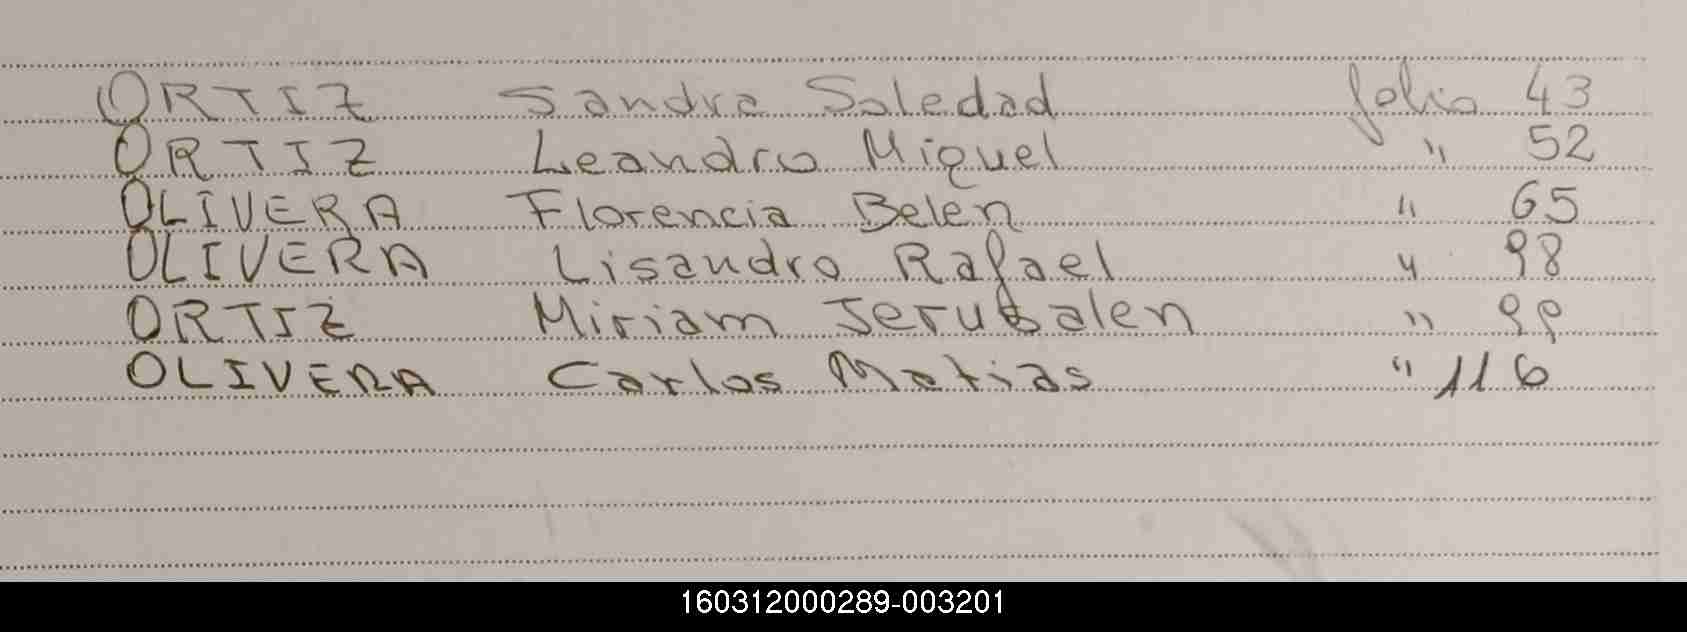 ORTIZ Sandra Soledad folio 43
ORTIZ Leandro Miguel " 52
OLIVERA Florencia Belen " 65
OLIVERA Lisandro Rafael " 98
ORTIZ Miriam Jerusalen " 99
OLIVERA Carlos Matias " 116
160312000289-003201